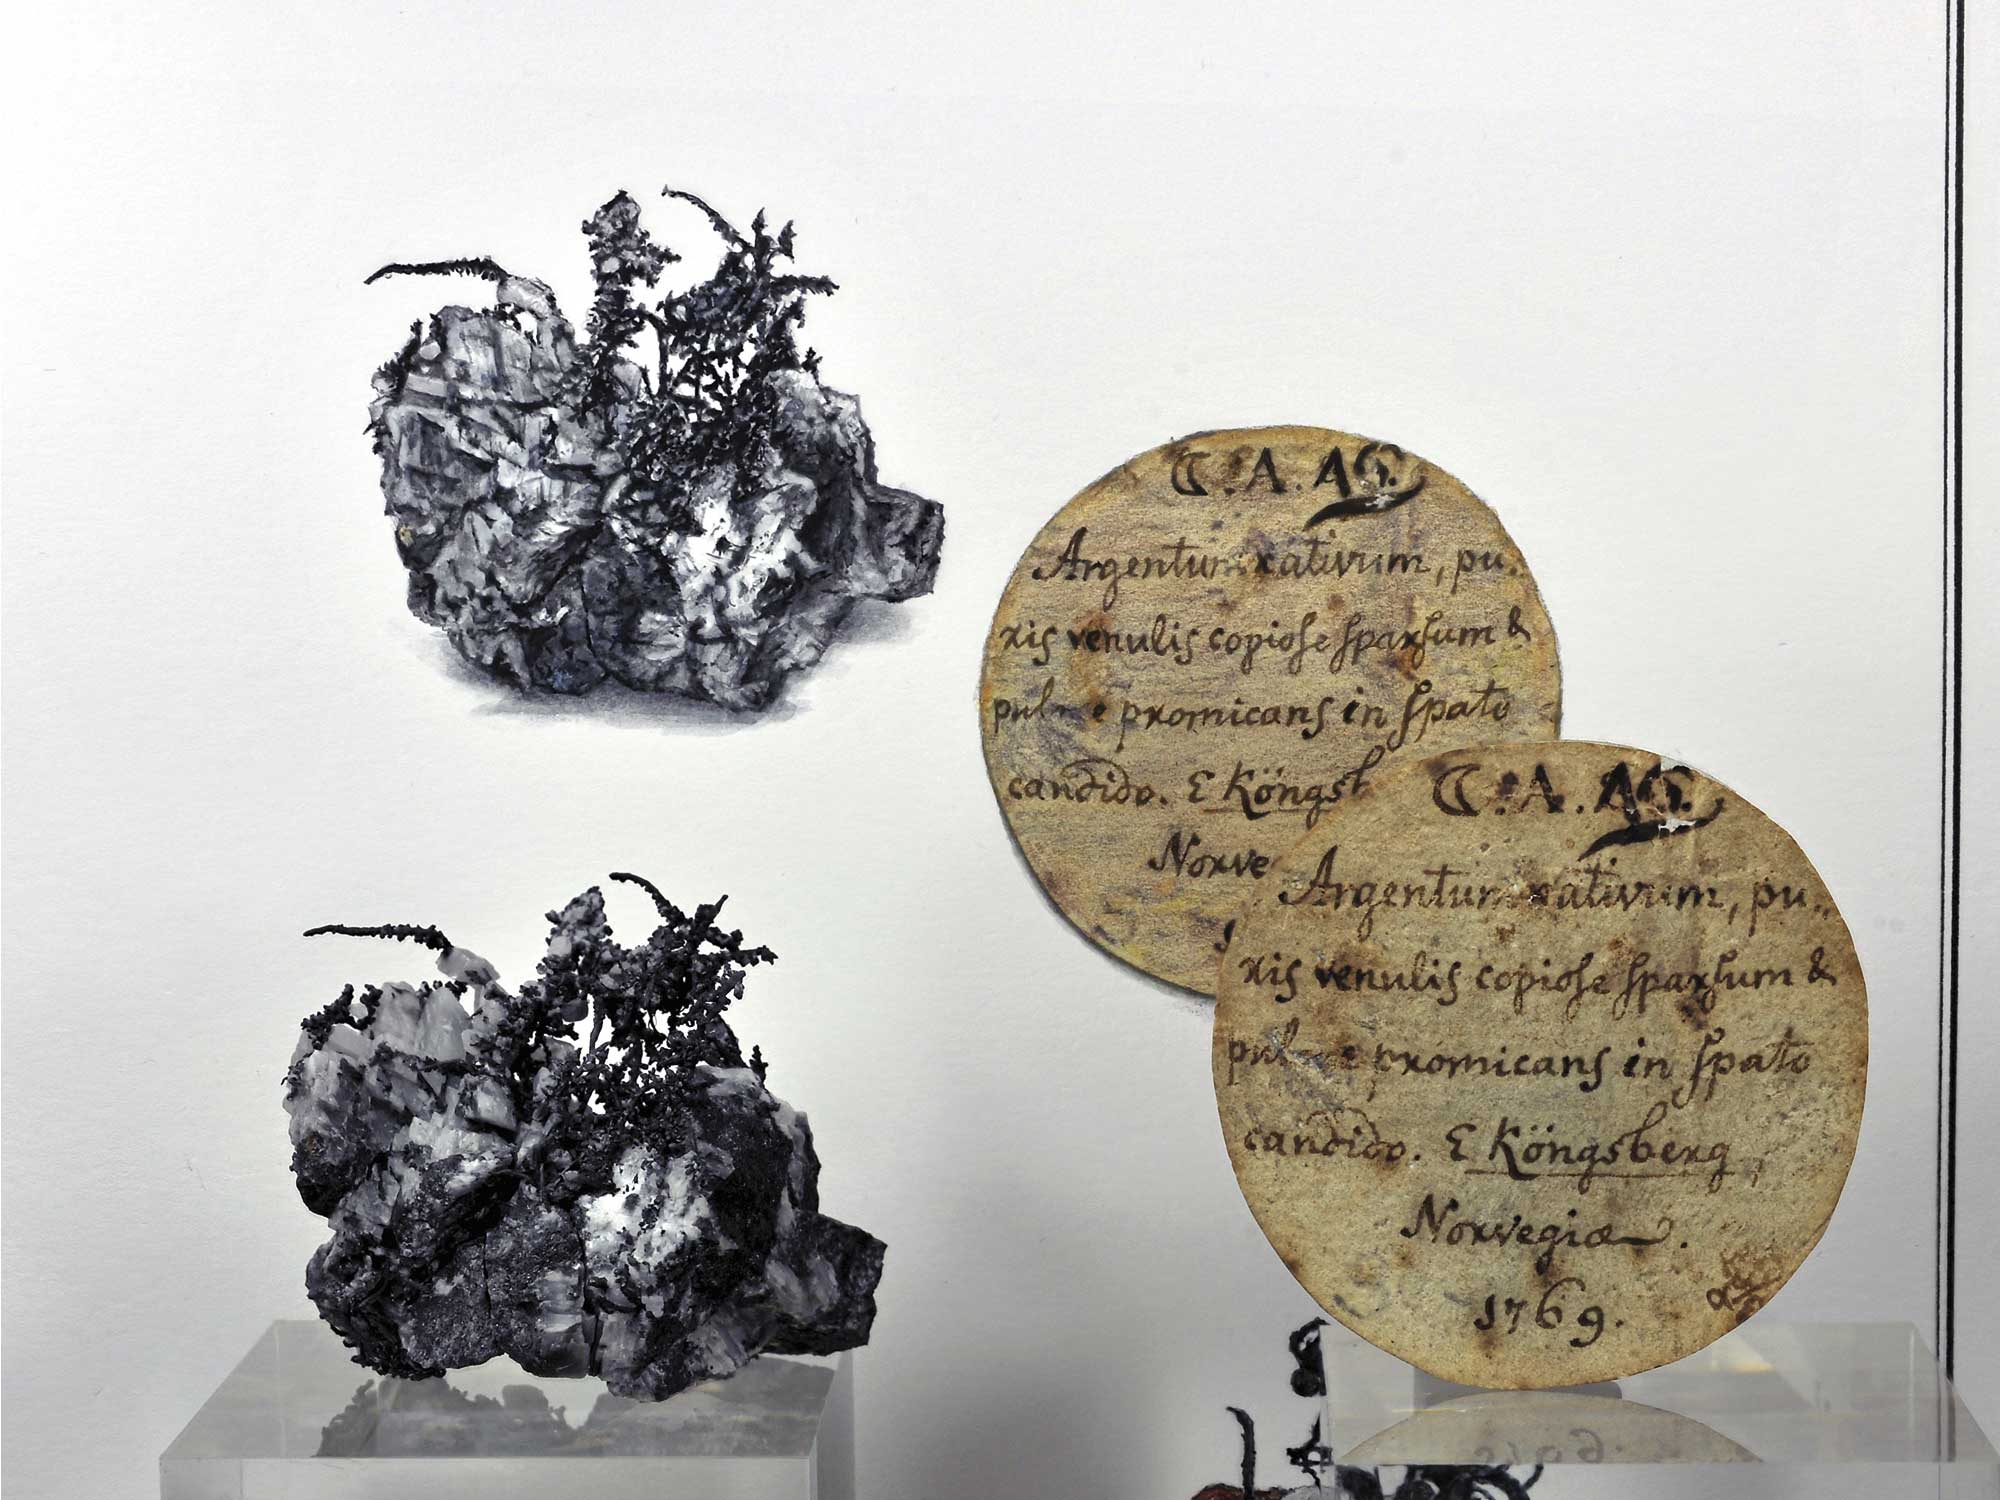 ☾. A. AG.
Argentum nativum, pu.
ris venulis copiose sparsum &
promicans in spato
candido. E Köngsb
Norve
☾. A. AG.
Argentum nativum, pu..
ris venulis copiose sparsum &
promicans in spato
candido. E Köngsberg,
Norvegiæ.
1769.